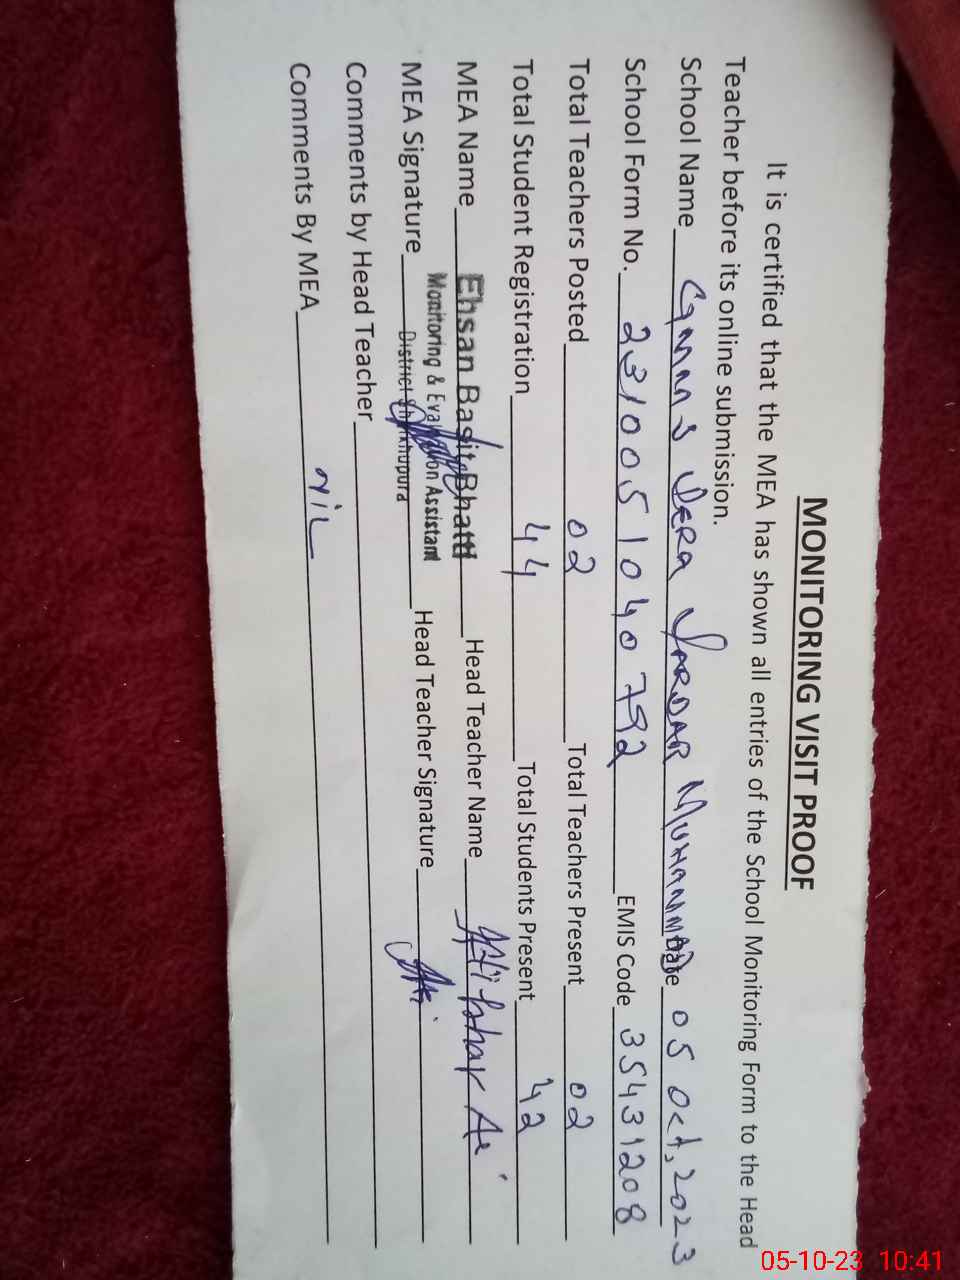 MONITORING VISIT PROOF
It is certified that the MEA has shown all entries of the School Monitoring Form to the Head
Teacher before its online submission.
School Name DERA SARDAR MUHAMMAD Date 05 Oct, 2023
School Form No. 2310051040792 EMIS Code 35431208
Total Teachers Posted 02 Total Teachers Present 02
Total Student Registration 44 Total Students Present 42
MEA Name Ehsan Basit Bhatti Head Teacher Name
Monitoring & Evaluation Assistant
MEA Signature District Sheikhupura Head Teacher Signature
Comments by Head Teacher
Comments By MEA Nil
05-10-23 10:41